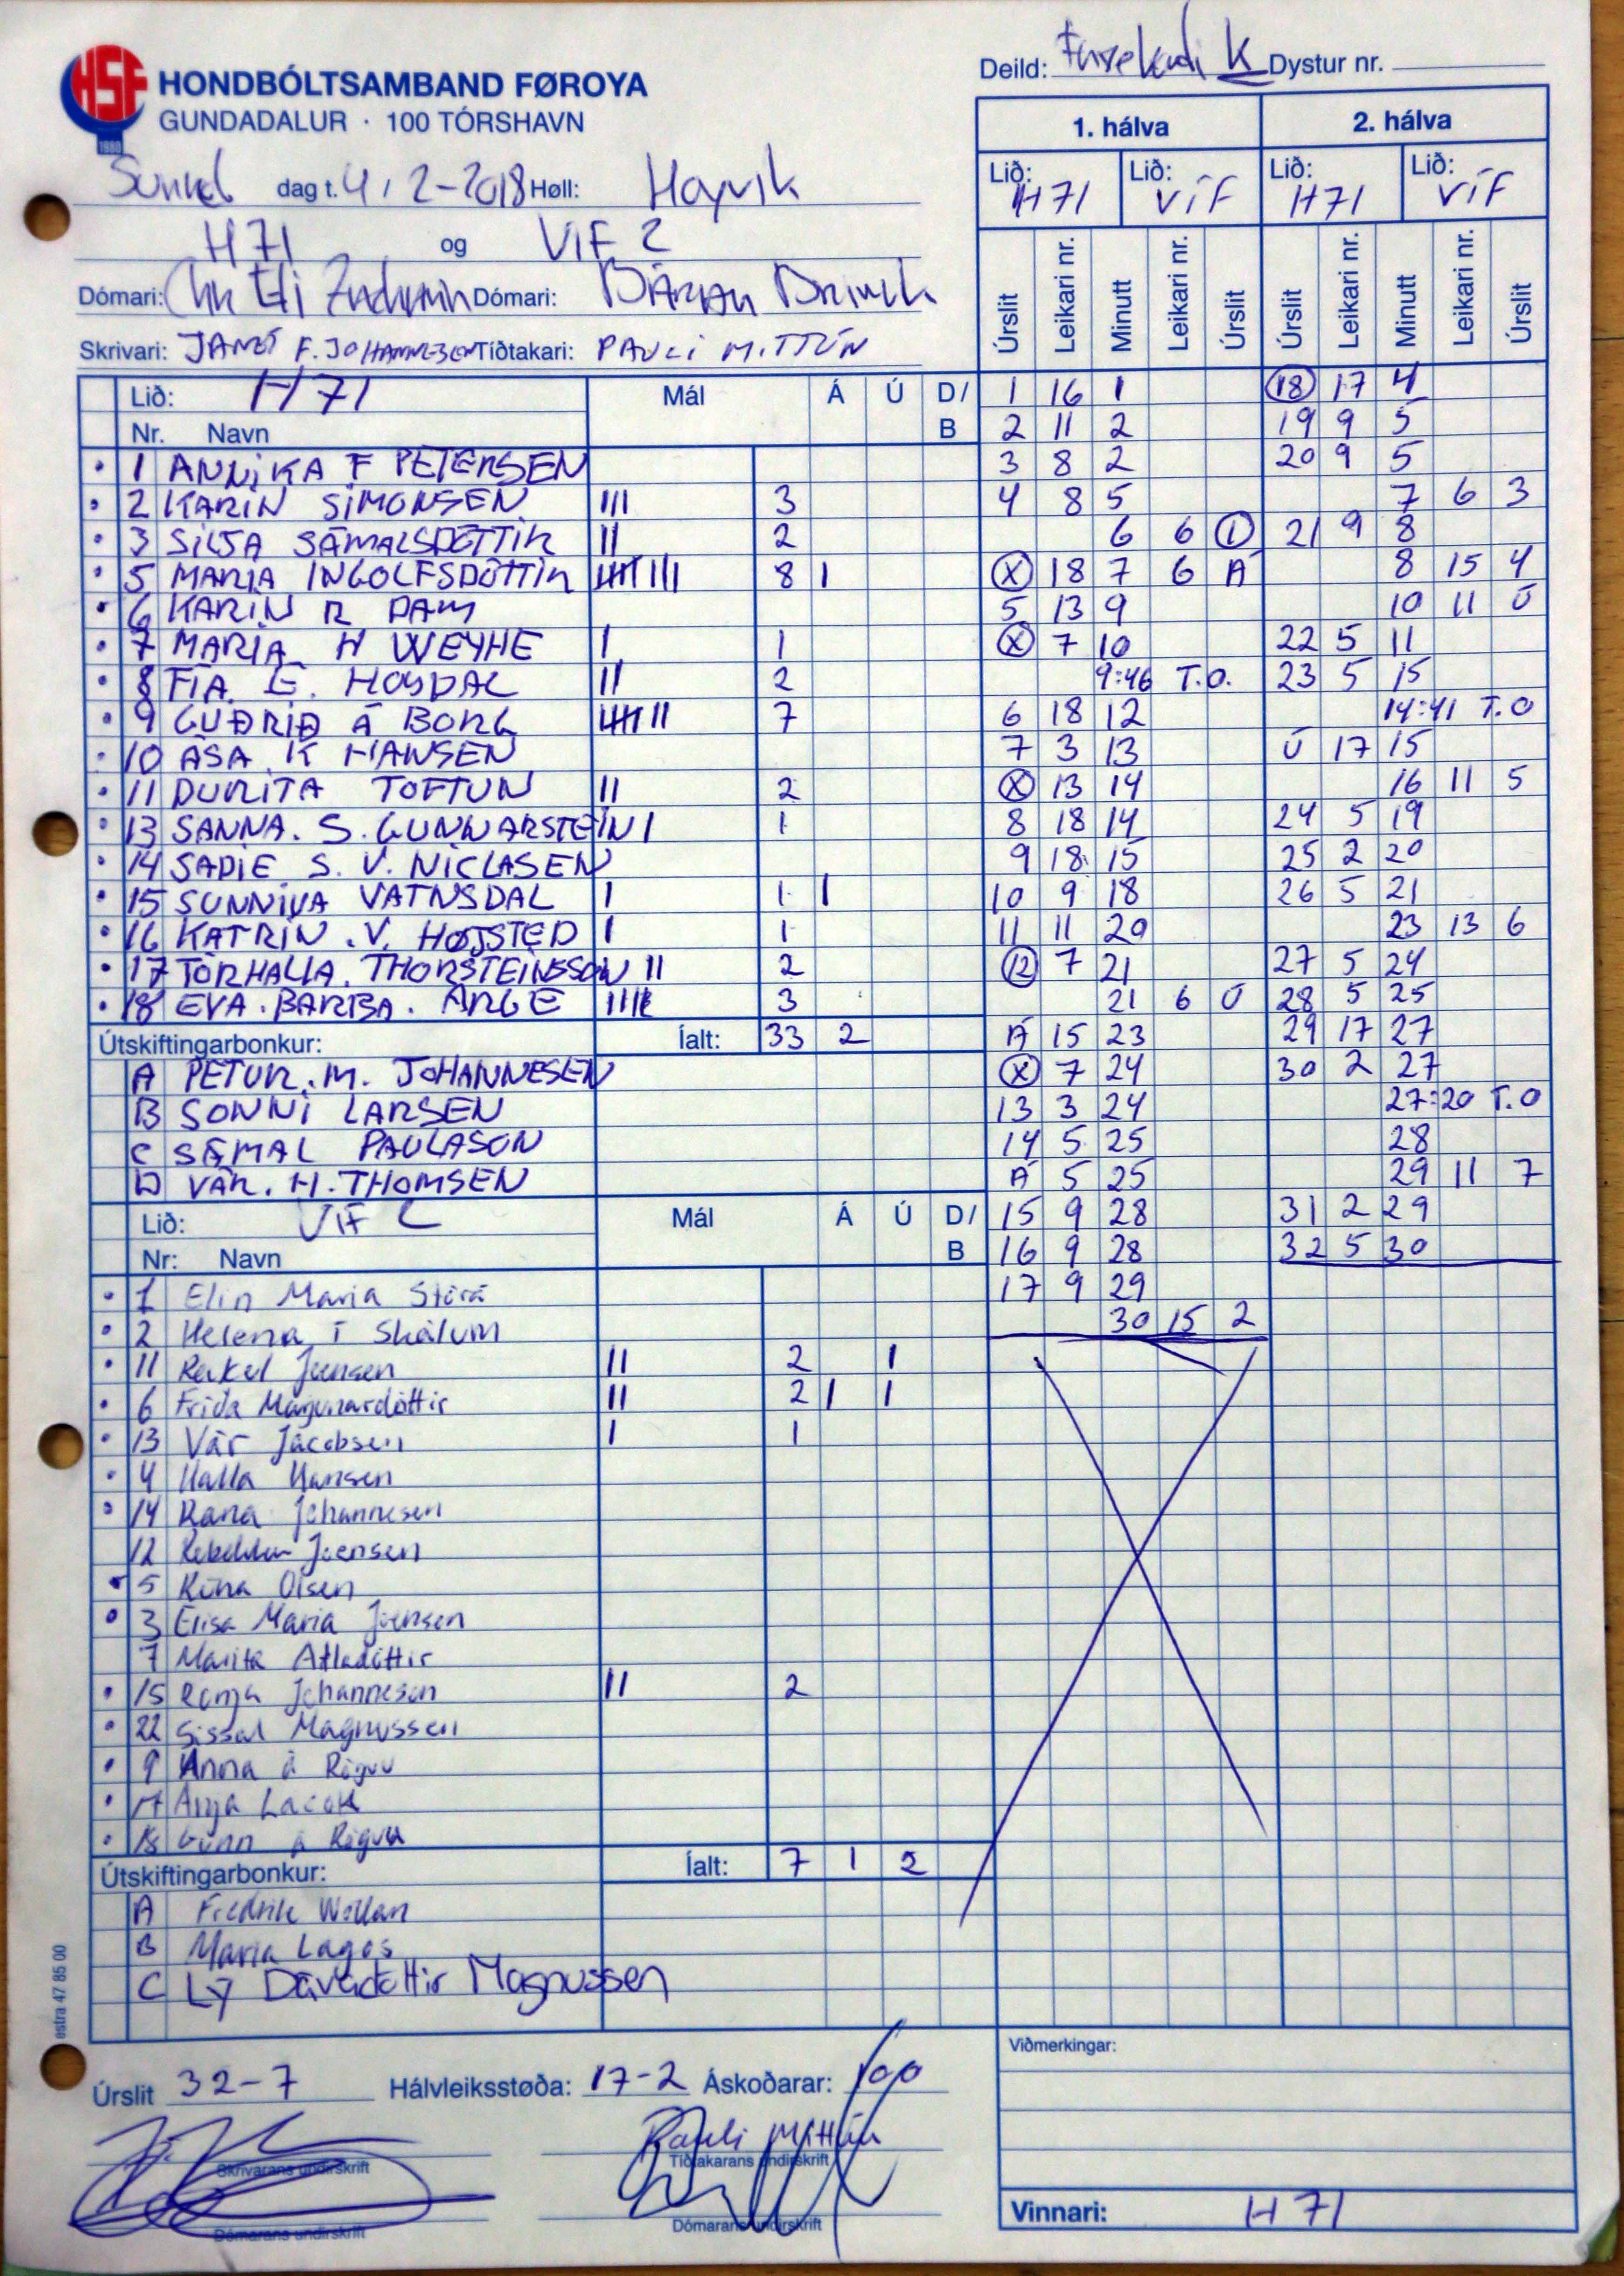 Deild: K Dystur nr.
HSF HONDBÓLTSAMBAND FØROYA
1980 GUNDADALUR · 100 TÓRSHAVN
Sunnud dag t. 4 / 2-2018 Høll: Hoyvík
H71 og VÍF 2
Dómari: Dómari:
Skrivari: JANS F. JOHANNESEN Tíðtakari: PAULI MITTÚN
1. hálva 2. hálva
Lið: H71 Lið: VÍF Lið: H71 Lið: VÍF
Úrslit Leikari nr. Minutt Leikari nr. Úrslit Úrslit Leikari nr. Minutt Leikari nr. Úrslit
Lið: H71 Mál Á Ú D/
Nr. Navn B
1 ANNIKA F PETERSEN
2 KARIN SIMONSEN III 3
3 SILJA SÁMALSDÓTTIR II 2
5 MARIA INGOLFSDÓTTIR IIIII III 8 1
6 KARIN R DAM
7 MARIA H WEYHE I 1
8 FÍA E. HOYDAL II 2
9 GUÐRIÐ Á BORG IIIII II 7
10 ÁSA K HANSEN
11 DURITA TOFTUN II 2
13 SANNA. S. GUNNARSTEIN I 1
14 SADIE S. V. NICLASEN
15 SUNNIVA VATNSDAL I 1 1
16 KATRIN .V. HØJSTED I 1
17 TÓRHALLA. THORSTEINSSON II 2
18 EVA. BARBA. ARGE 3
Útskiftingarbonkur: Íalt: 33 2
A PETUR. M. JOHANNESEN
B SONNI LARSEN
C SÁMAL PAULASON
D VÁR. H. THOMSEN
Lið: VÍF 2 Mál Á Ú D/
Nr: Navn B
1 Elin Maria Stórá
2 Helena í Skálum
11 Rakul Joensen II 2 1
6 Fríða Magnunardóttir II 2 1 1
13 Vár Jacobsen I 1
4 Halla Hansen
14 Rana Johannesen
12 Rebekka Joensen
5 Rúna Olsen
3 Elisa Maria Joensen
7 Marita Atladóttir
15 Ronja Johannesen II 2
22 Sissal Magnussen
9 Anna á Rógvu
17 Anja Lacok
18 Gunn á Rógvu
Útskiftingarbonkur: Íalt: 7 1 2
A Fredrik Wollan
B Maria Lagos
C Lý Dávadóttir Magnussen
1 16 1
2 11 2
3 8 2
4 8 5
6 6 1
X 18 7 6 Á
5 13 9
X 7 10
9:46 T.O.
6 18 12
7 3 13
X 13 14
8 18 14
9 18 15
10 9 18
11 11 20
12 7 21
21 6 Ú
Á 15 23
X 7 24
13 3 24
14 5 25
Á 5 25
15 9 28
16 9 28
17 9 29
30 15 2
18 17 4
19 9 5
20 9 5
7 6 3
21 9 8
8 15 4
10 11 Ú
22 5 11
23 5 15
14:41 T.O
Ú 17 15
16 11 5
24 5 19
25 2 20
26 5 21
23 13 6
27 5 24
28 5 25
29 17 27
30 2 27
27:20 T.O
28
29 11 7
31 2 29
32 5 30
Úrslit 32-7 Hálvleiksstøða: 17-2 Áskoðarar: 100
Skrivarans undirskrift Pauli Mittún
Tíðtakarans undirskrift
Dómarans undirskrift Dómarans undirskrift
Viðmerkingar:
Vinnari: H71
estra 47 85 00